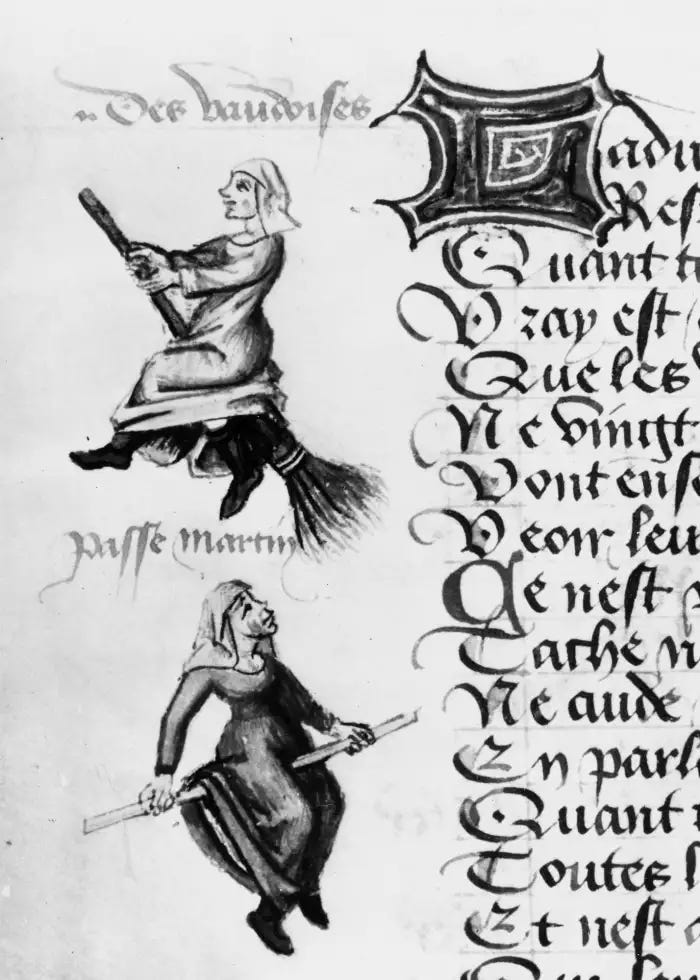 Des vaudoises
passe martin
Ladu
Res
Quant t
Vray est
Que les v
Ne vingt
Vont ense
Veoir leu
Ce nest
Tache
Ne aude
En parl
Quant
Toutes l
Et nest